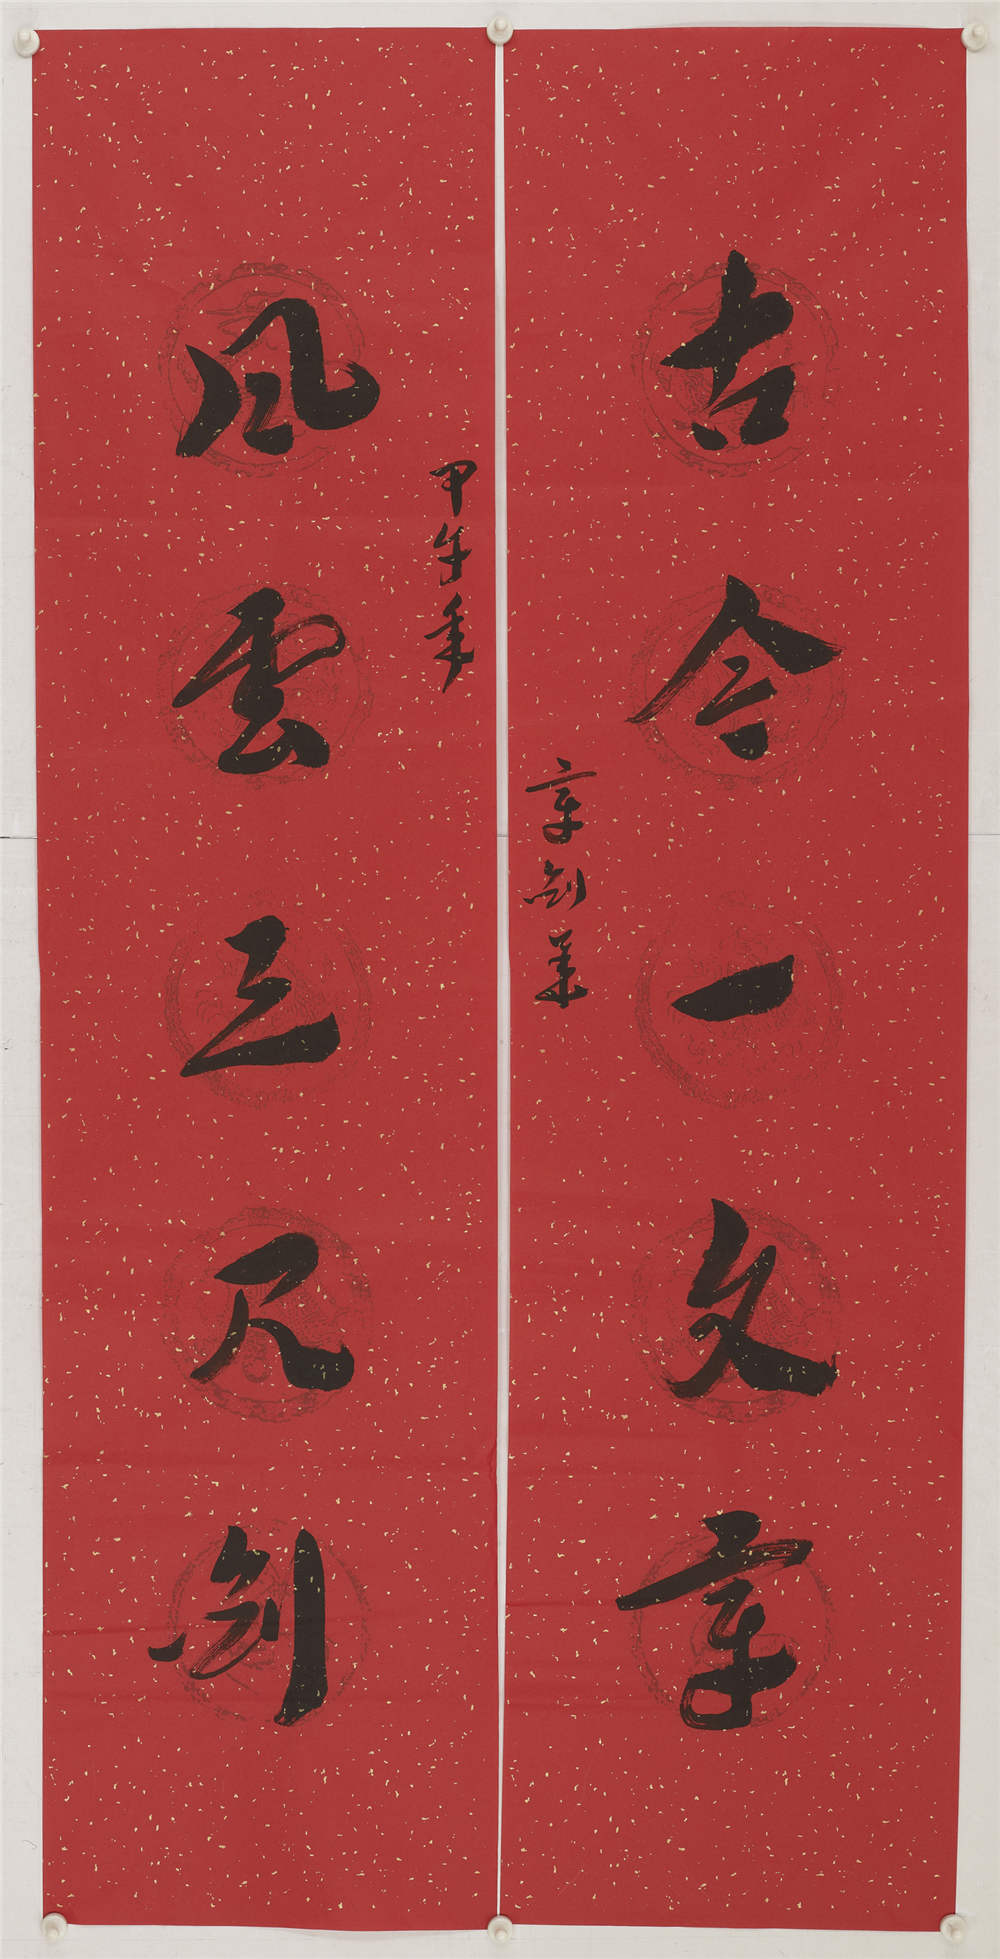 古今一文章
章剑笔
風雲三尺剑
甲午年